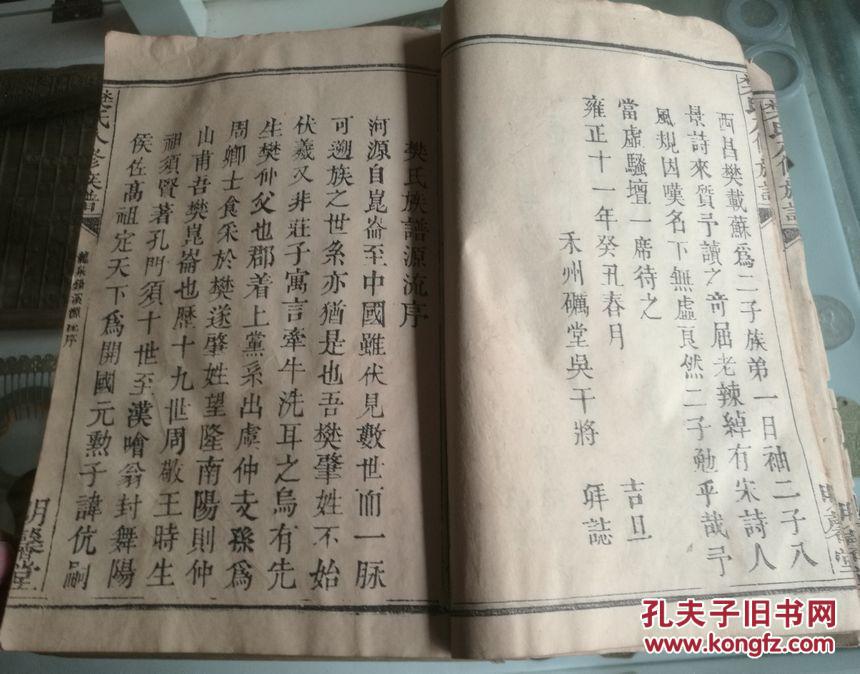 西昌樊載蘇爲二子族弟一日袖二子八
景詩來質予讀之奇屈老辣綽有宋詩人
風規因嘆名下無虛頁然二子勉乎哉予
當虛騷壇一席待之
雍正十一年癸丑春月 吉旦
禾州礪堂吳干將 拜誌
樊氏族譜源流序
河源自崑崙至中國雖伏見數世而一脉
可遡族之世系亦猶是也吾樊肇姓不始
伏羲又非莊子寓言牽牛洗耳之烏有先
生樊仲父也郡着上黨系出虞仲支孫爲
周卿士食采於樊遂肇姓望隆南陽則仲
山甫吾樊崑崙也歷十九世周敬王時生
祖須賢著孔門須十世至漢噲翁封舞陽
侯佐高祖定天下爲開國元勲子諱伉嗣
樊氏八修族譜
明馨堂
孔夫子旧书网
www.kongfz.com